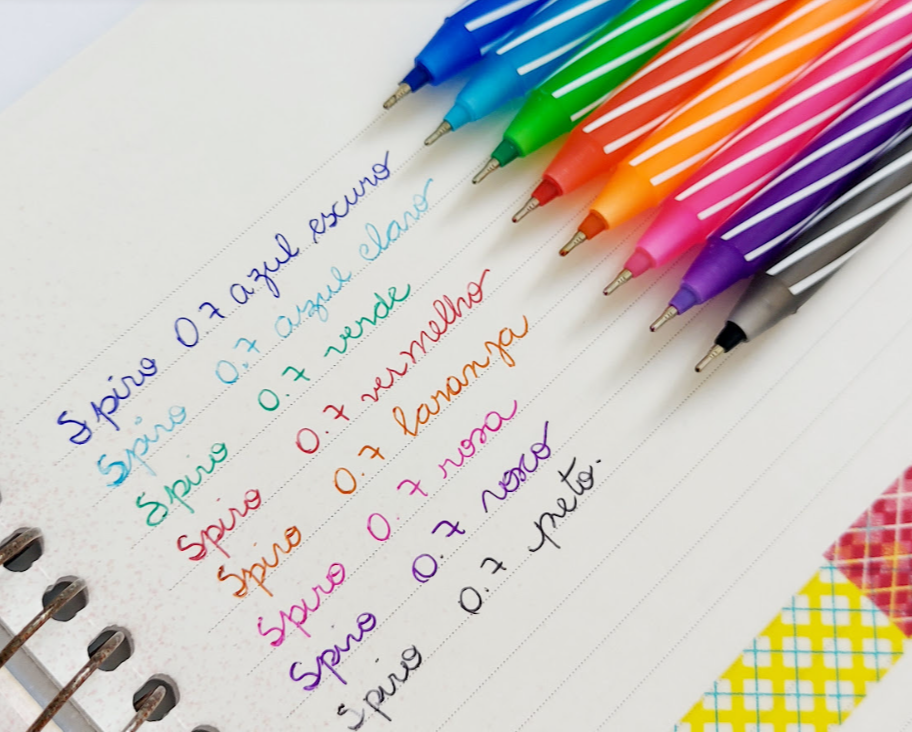 Spiro 0.7 azul escuro
Spiro 0.7 azul claro
Spiro 0.7 verde
Spiro 0.7 vermelho
Spiro 0.7 laranja
Spiro 0.7 rosa
Spiro 0.7 roxo
Spiro 0.7 preto.